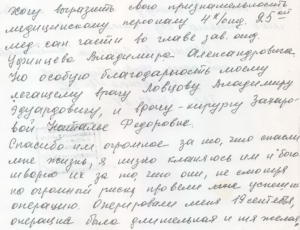 Хочу выразить свою признательность
медицинскому персоналу 4х/отд. 25ой
мед. сан. части во главе зав. отд.
Владимира Александровича.
Но особую благодарность моему
лечащему врачу Ловцову Владимиру
Эдуардовичу, и врачу-хирургу Захаро-
вой Наталье Федоровне.
Спасибо им огромное за то, что спасли
мне жизнь, я низко кланяюсь им и бого
творю их за то, что они, не смотря
на огромный риск, провели мне успешно
операцию. Оперировали меня 19 сентября,
операция была длительная и тяжелая